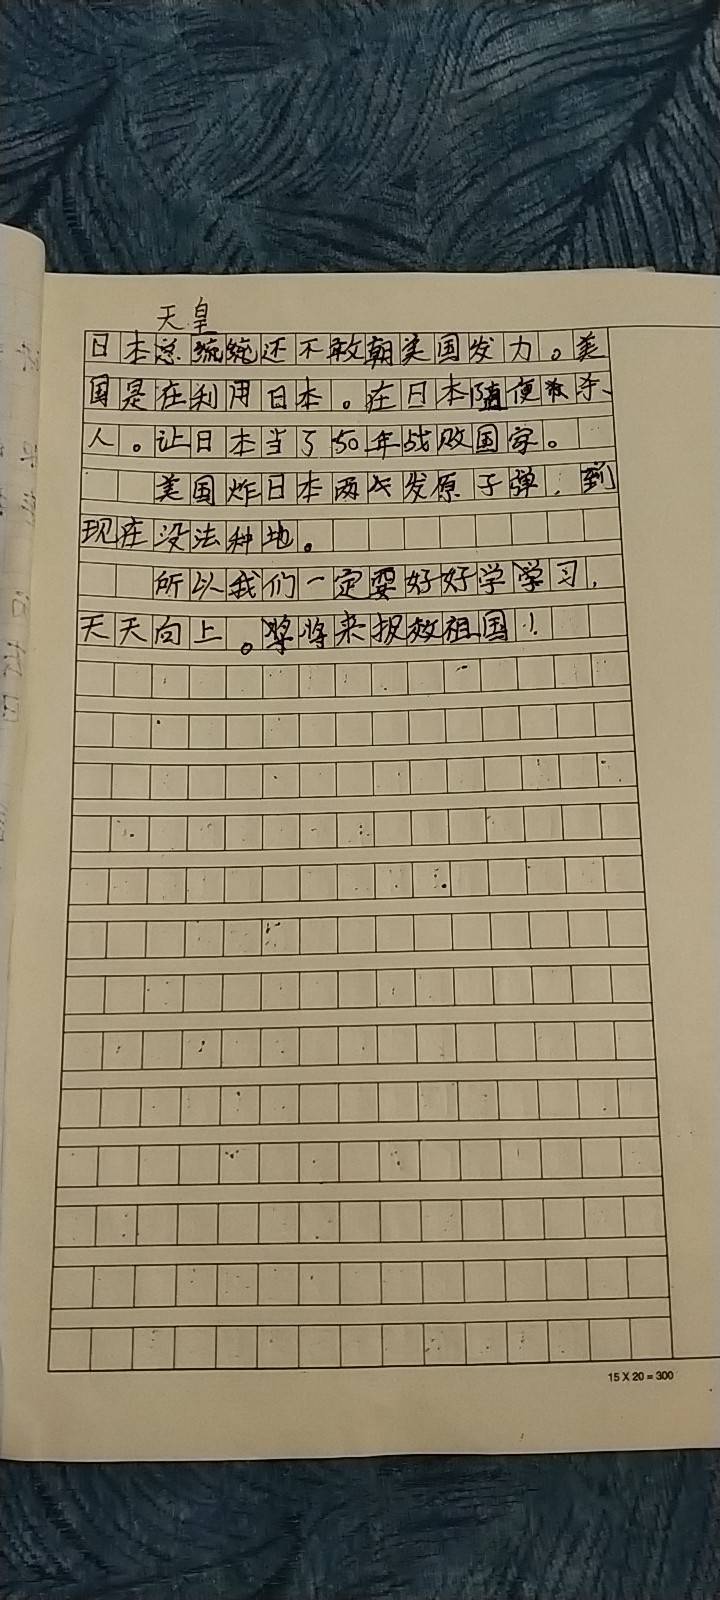 天皇
日本总统统还不敢朝美国发力。美
国是在利用日本。在日本随便杀
人。让日本当了50年战败国家。
美国炸日本两次发原子弹，到
现在没法种地。
所以我们一定要好好学学习，
天天向上。将来报效祖国！
15 X 20 = 300